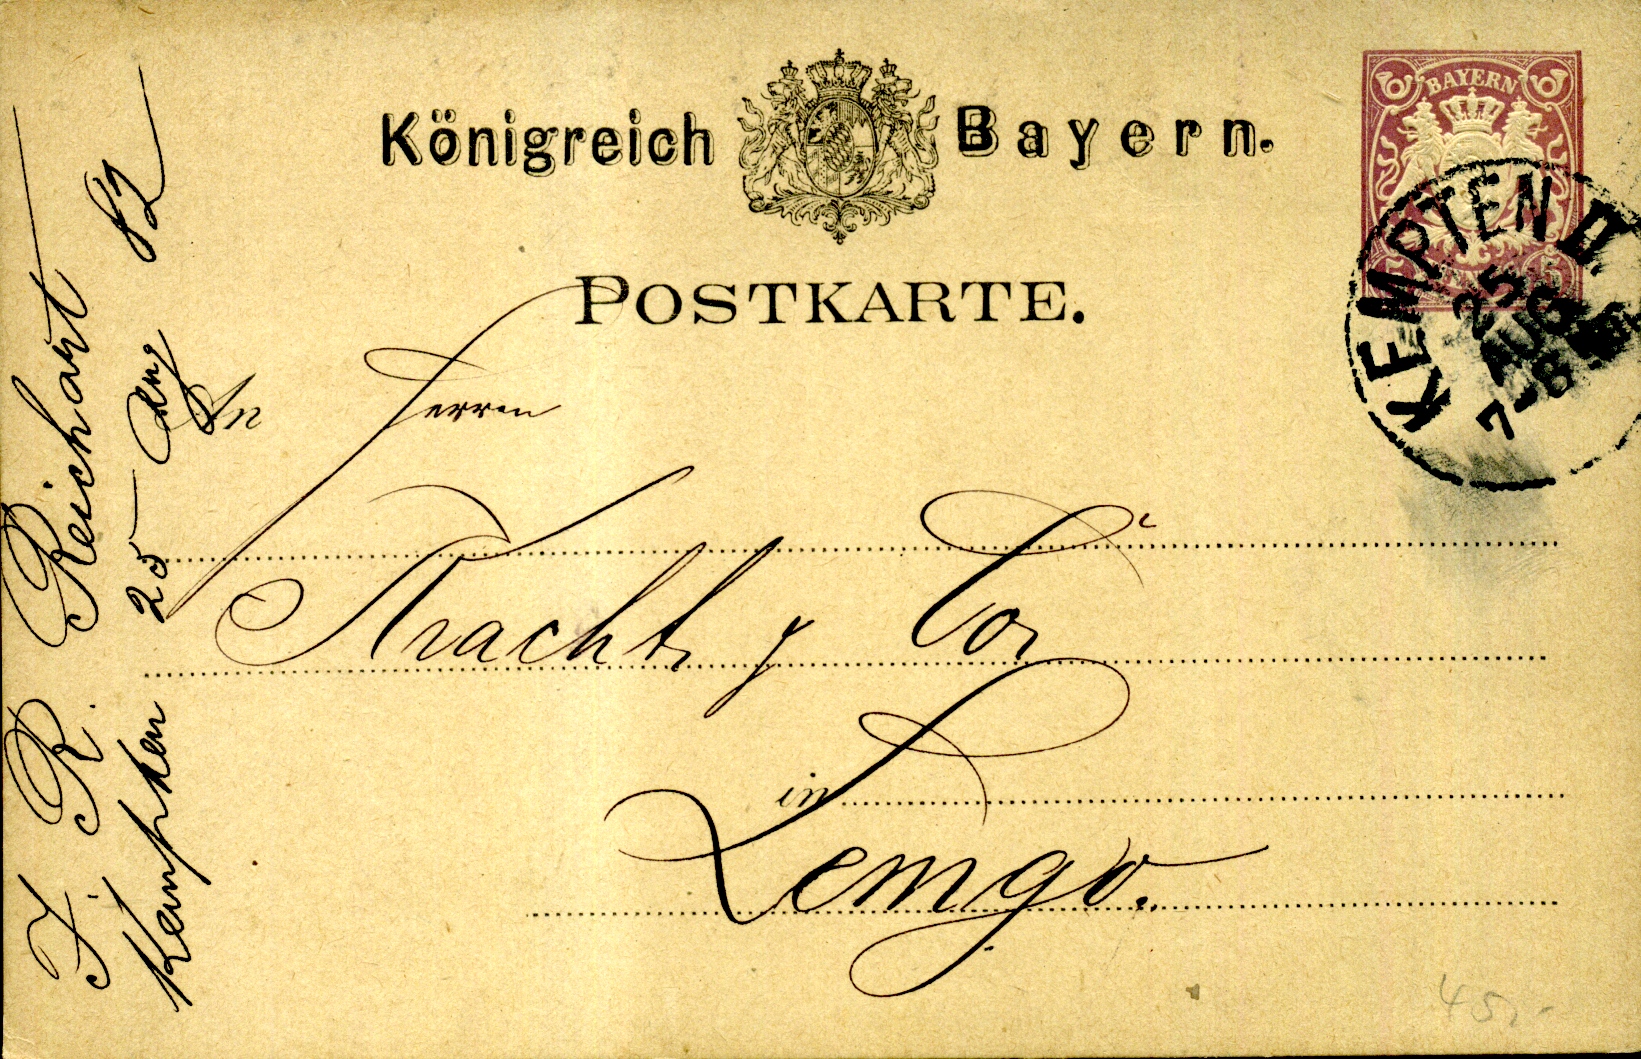 Königreich Bayern.
BAYERN
POSTKARTE.
KEMPTEN II.
25
AUG
7-8
An Herren
Kracht & Co
in
Lemgo.
F. R. Reichart
Kempten 25 Aug 82
45,-